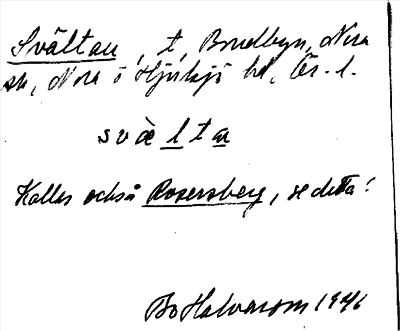 Svältan, t, Bredbyn, Nora
sn, Nora o Hjulsjö hd, Ör. l.
svàelta
Kallas också Rosersberg, se detta!
Bo Halvarson 1946